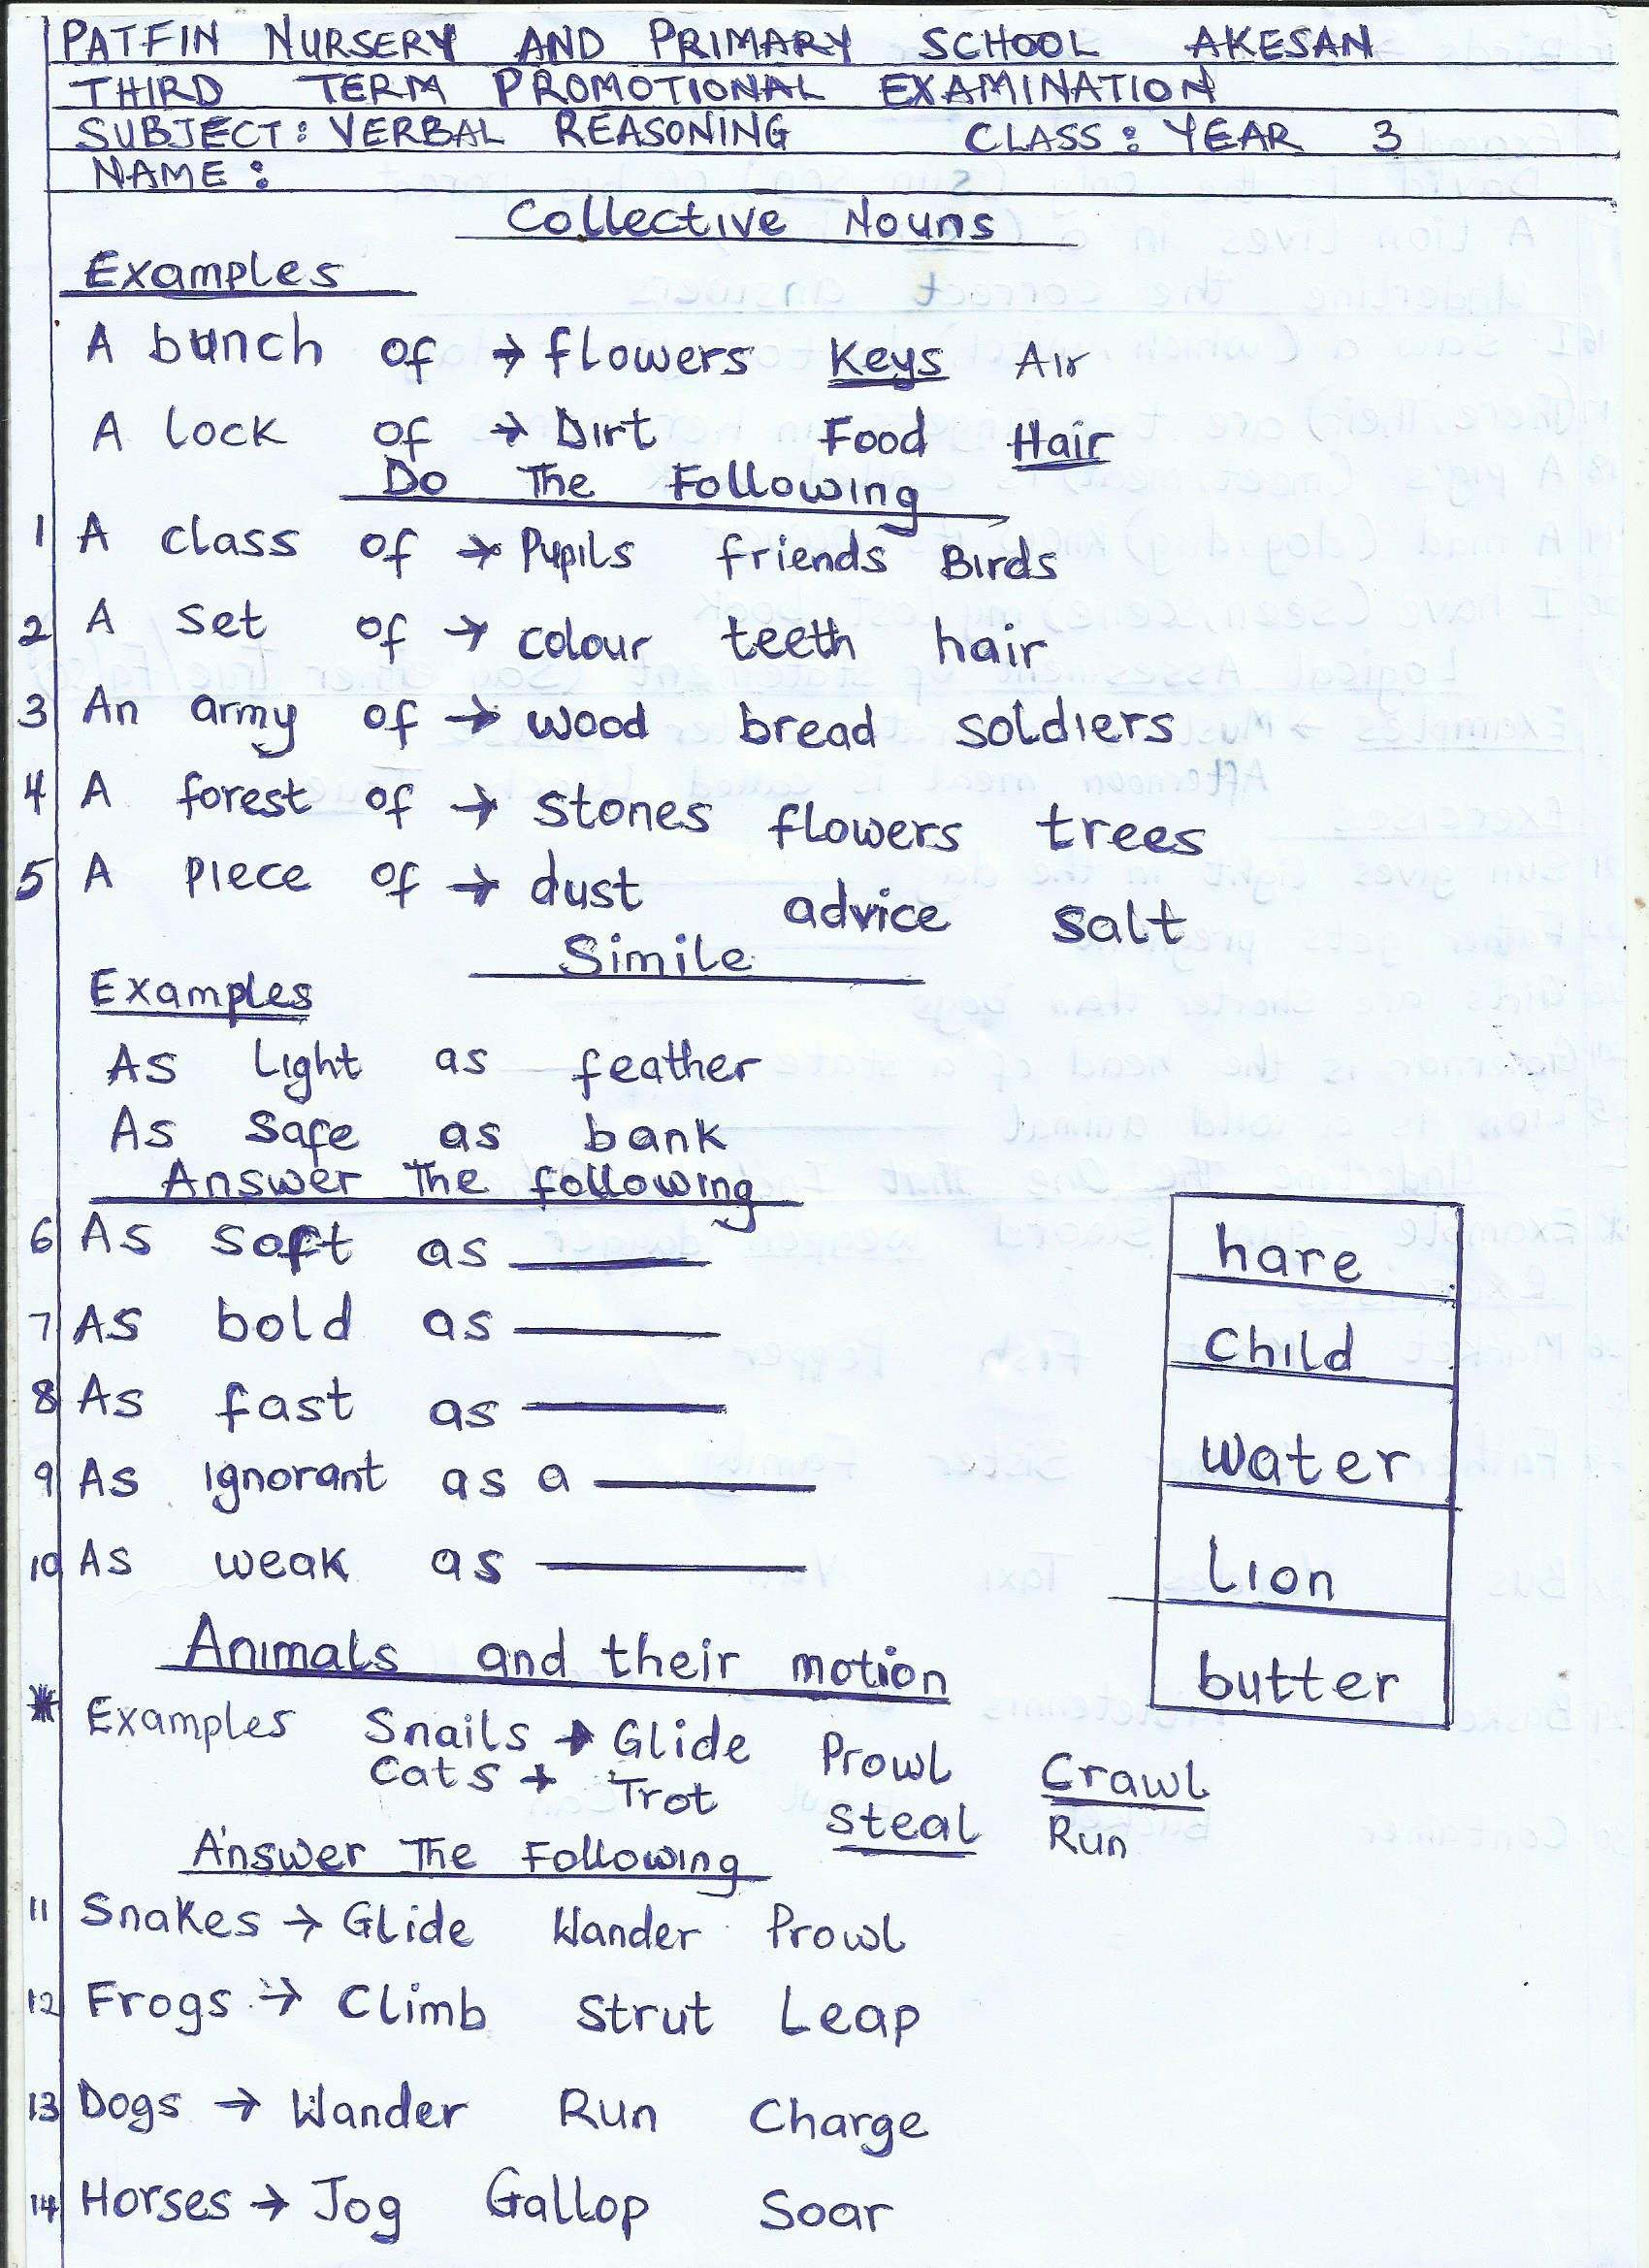 PATFIN NURSERY AND PRIMARY SCHOOL AKESAN
THIRD TERM PROMOTIONAL EXAMINATION
SUBJECT: VERBAL REASONING CLASS: YEAR 3
NAME:
Collective Nouns
Examples
A bunch of → flowers Keys Air
A lock of → Dirt Food Hair
Do The Following
1 A class of → Pupils friends Birds
2 A set of → colour teeth hair
3 An army of → wood bread soldiers
4 A forest of → stones flowers trees
5 A piece of → dust advice salt
Simile
Examples
As light as feather
As safe as bank
Answer The following
6 As soft as ______
7 As bold as ______
8 As fast as ______
9 As ignorant as a ______
10 As weak as ______
hare
child
water
lion
butter
Animals and their motion
* Examples Snails → Glide Prowl Crawl
Cats → Trot Steal Run
Answer The Following
11 Snakes → Glide Wander Prowl
12 Frogs → Climb Strut Leap
13 Dogs → Wander Run Charge
14 Horses → Jog Gallop Soar